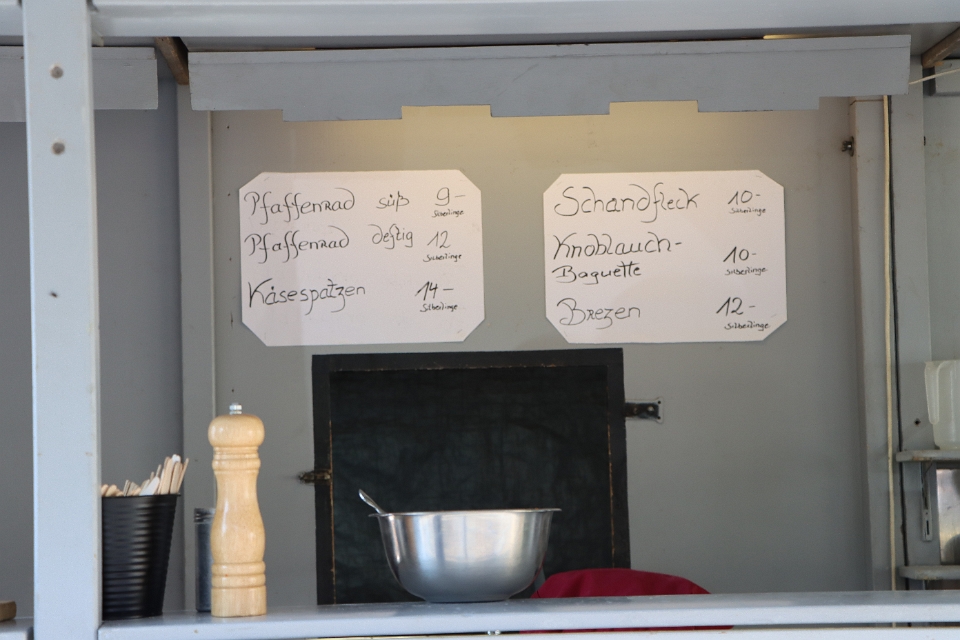 Pfaffenrad süß 9-
Silberlinge
Pfaffenrad deftig 12
Silberlinge
Käsespatzen 14-
Silberlinge
Schandfleck 10-
Silberlinge
Knoblauch-
Baguette 10-
Silberlinge
Brezen 12-
Silberlinge